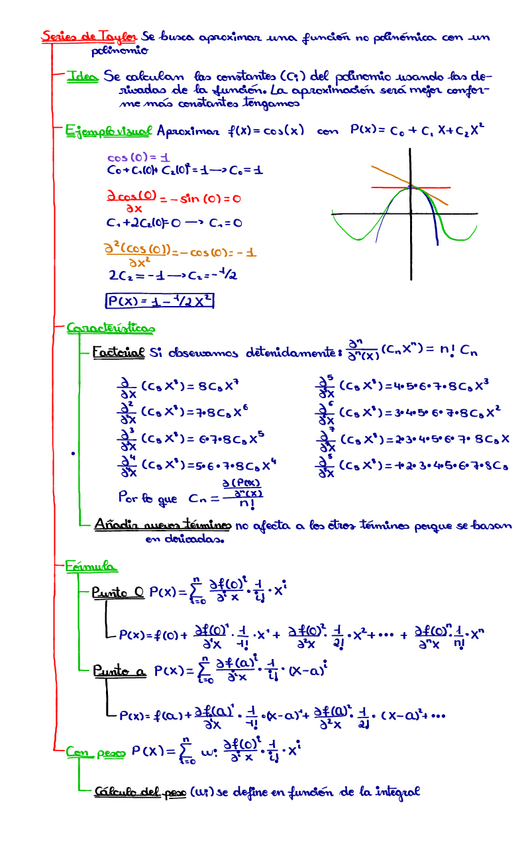 Series de Taylor Se busca aproximar una función no polinómica con un
polinomio
Idea Se calculan las constantes (Ci) del polinomio usando las de-
rivadas de la función. La aproximación será mejor confor-
me más constantes tengamos
Ejemplo visual Aproximar f(x)=cos(x) con P(x) = C₀ + C₁ X + C₂X²
cos(0) = 1
C₀ + C₁(0) + C₂(0)² = 1 → C₀ = 1
∂cos(0)/∂x = -sin(0) = 0
C₁ + 2C₂(0) = 0 → C₁ = 0
∂²(cos(0))/∂x² = -cos(0) = -1
2C₂ = -1 → C₂ = -1/2
P(x) = 1 - 1/2 X²
Características
Factorial Si observamos detenidamente: ∂ⁿ/∂ⁿ(x) (CₙXⁿ) = n! Cₙ
∂/∂x (C₈X⁸) = 8C₈X⁷
∂²/∂x (C₈X⁸) = 7·8C₈X⁶
∂³/∂x (C₈X⁸) = 6·7·8C₈X⁵
∂⁴/∂x (C₈X⁸) = 5·6·7·8C₈X⁴
∂⁵/∂x (C₈X⁸) = 4·5·6·7·8C₈X³
∂⁶/∂x (C₈X⁸) = 3·4·5·6·7·8C₈X²
∂⁷/∂x (C₈X⁸) = 2·3·4·5·6·7·8C₈X
∂⁸/∂x (C₈X⁸) = 1·2·3·4·5·6·7·8C₈
Por lo que Cₙ = (∂(P(x))/∂ⁿ(x))/n!
Añadir nuevos términos no afecta a los otros términos porque se basan
en derivadas.
Fórmula
Punto 0 P(x) = Σⁿᵢ₌₀ ∂f(0)ⁱ/∂ⁱx · 1/i! · xⁱ
P(x) = f(0) + ∂f(0)¹/∂¹x · 1/1! · x¹ + ∂f(0)²/∂²x · 1/2! · x² + ··· + ∂f(0)ⁿ/∂ⁿx · 1/n! · xⁿ
Punto a P(x) = Σⁿᵢ₌₀ ∂f(a)ⁱ/∂ⁱx · 1/i! · (x-a)ⁱ
P(x) = f(a) + ∂f(a)¹/∂¹x · 1/1! · (x-a)¹ + ∂f(a)²/∂²x · 1/2! · (x-a)² + ···
Con pesos P(x) = Σⁿᵢ₌₀ wᵢ ∂f(0)ⁱ/∂ⁱx · 1/i! · xⁱ
Cálculo del peso (wᵢ) se define en función de la integral